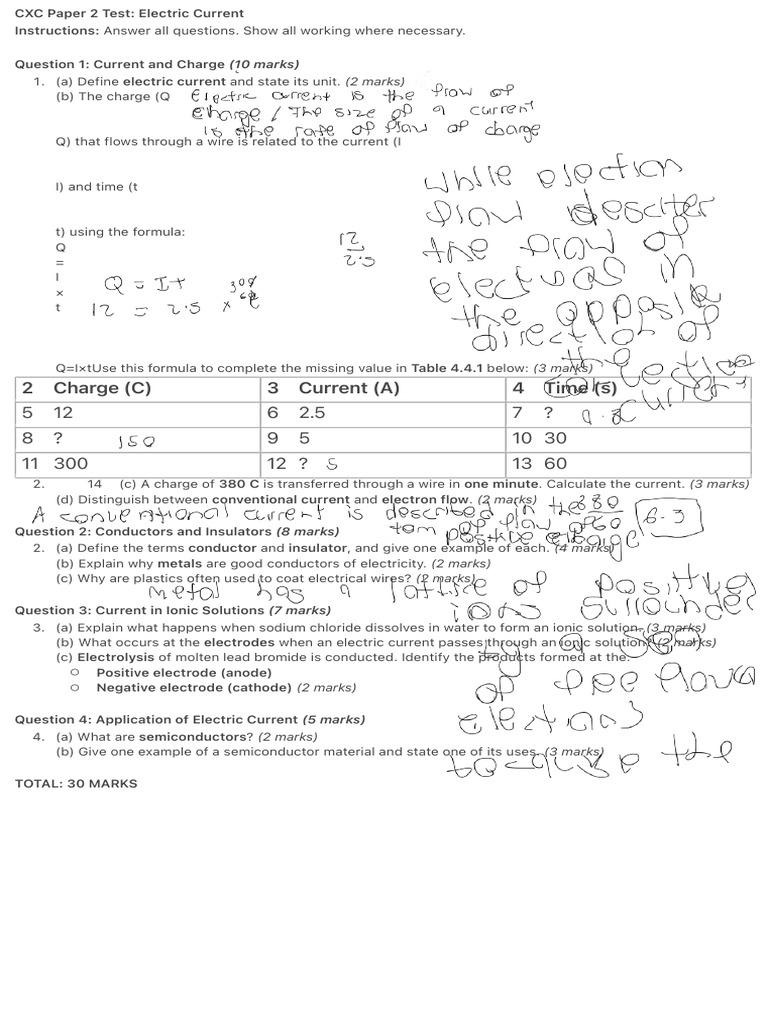 CXC Paper 2 Test: Electric Current
Instructions: Answer all questions. Show all working where necessary.
Question 1: Current and Charge (10 marks)
1. (a) Define electric current and state its unit. (2 marks)
(b) The charge (Q
Electric current is the flow of
charge / The size of a current
is the rate of flow of charge
Q) that flows through a wire is related to the current (I
while
I) and time (t
flow
t) using the formula:
the flow of
Q
=
I
×
t
12
2.5
Q = It
12 = 2.5 × t
in
the
of
the
Q=I×tUse this formula to complete the missing value in Table 4.4.1 below: (3 marks)
2 Charge (C) 3 Current (A) 4 Time (s)
5 12 6 2.5 7 ?
8 ? 150 9 5 10 30
11 300 12 ? 5 13 60
2. 14 (c) A charge of 380 C is transferred through a wire in one minute. Calculate the current. (3 marks)
(d) Distinguish between conventional current and electron flow. (2 marks)
380
60
6.3
A conventional current is described in the
Question 2: Conductors and Insulators (8 marks)
2. (a) Define the terms conductor and insulator, and give one example of each. (4 marks)
(b) Explain why metals are good conductors of electricity. (2 marks)
(c) Why are plastics often used to coat electrical wires? (2 marks)
metal has a lattice of positive
ions surrounded
Question 3: Current in Ionic Solutions (7 marks)
3. (a) Explain what happens when sodium chloride dissolves in water to form an ionic solution. (3 marks)
(b) What occurs at the electrodes when an electric current passes through an ionic solution? (2 marks)
by a sea
(c) Electrolysis of molten lead bromide is conducted. Identify the products formed at the:
○ Positive electrode (anode)
○ Negative electrode (cathode) (2 marks)
of free
Question 4: Application of Electric Current (5 marks)
4. (a) What are semiconductors? (2 marks)
(b) Give one example of a semiconductor material and state one of its uses. (3 marks)
the
TOTAL: 30 MARKS